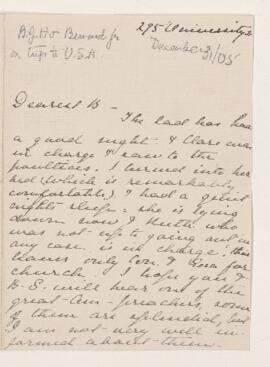 B.J.H to Bernard for
on trip to U.S.A
295 University
December 31/05
Dearest B –
The lad has had
a good night & Clare was
in charge & saw to the
poultices. I turned into her
bed (which is remarkably
comfortable) & had a quiet
night's sleep – she is lying
down now & Ruth who
was not up to going out in
any case is in charge, thus
leaves only Con. & for
church. I hope you &
B.S. will hear one of the
great Am. preachers, some
of them are splendid, but
I am not very well in-
formed about them.